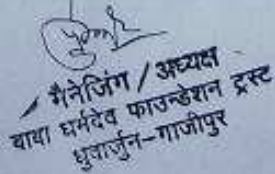 मैनेजिंग / अध्यक्ष
बाबा धर्मदेव फाउन्डेशन ट्रस्ट
धुवार्जुन-गाजीपुर